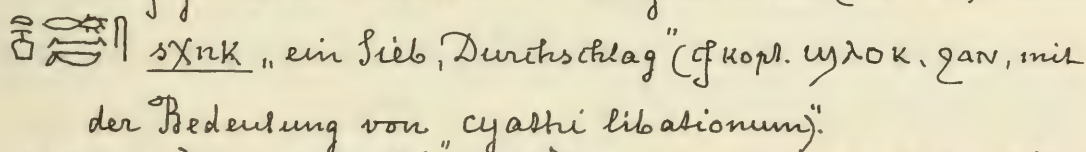 sχnk „ein Sieb, Durchschlag" (cf kopt. ϣλοκ. ϩαν, mit
der Bedeutung von „cyathi libationum)".